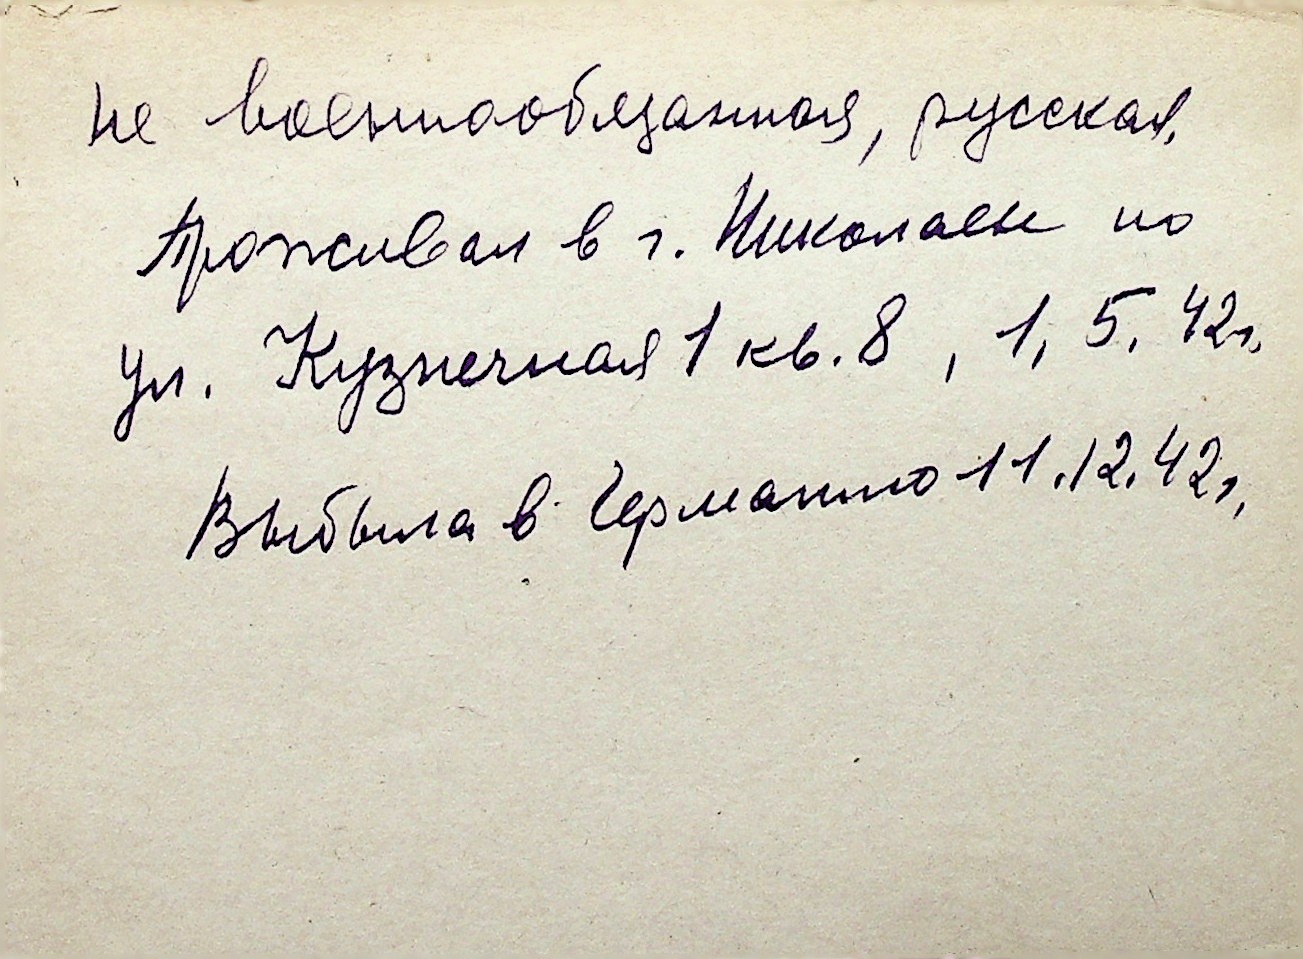 не военнообязанная, русская,
Проживал в г. Николаеве по
ул. Кузнечная 1 кв. 8, 1, 5. 42г.
Выбыла в Германию 11.12.42г.